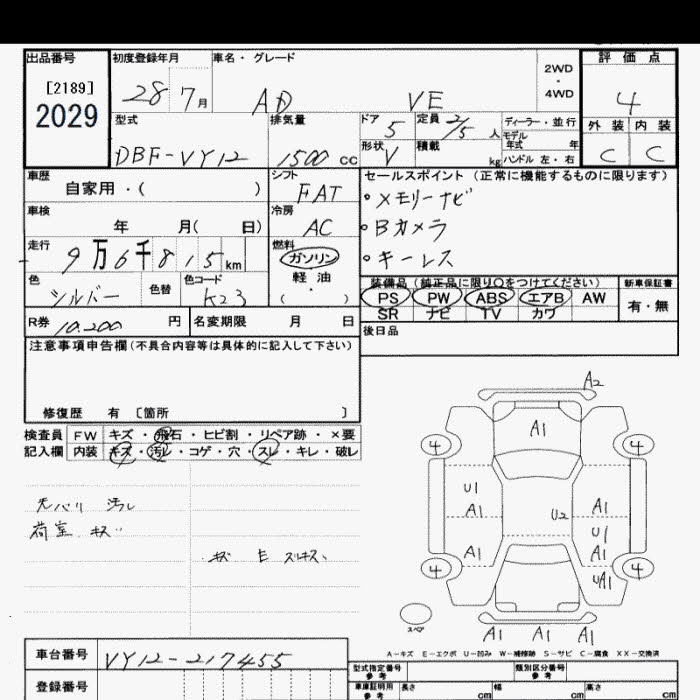 出品番号
[2189]
2029
初度登録年月
28 7月
車名・グレード
AD VE
2WD
・
4WD
評価点
4
外装 内装
C C
型式
DBF-VY12
排気量
1500 cc
ドア
5
定員
2/5 人
ディーラー・並行
モデル
年式 年
形状
V
積載
kg
ハンドル 左・右
車歴
自家用・( )
シフト
FAT
セールスポイント (正常に機能するものに限ります)
・メモリーナビ
・Bカメラ
・キーレス
車検
年 月( 日)
冷房
AC
走行
9万6千815km
燃料
ガソリン
軽油
・
( )
色
シルバー
色替
色コード
K23
装備品 (純正品に限り○をつけてください)
PS PW ABS エアB AW
SR ナビ TV カワ
新車保証書
有・無
R券 10.200 円
名変期限 月 日
後日品
注意事項申告欄(不具合内容等は具体的に記入して下さい)
修復歴 有 〔箇所 〕
検査員
記入欄
FW キズ・飛石・ヒビ割・リペア跡・×要
内装 キズ・汚レ・コゲ・穴・スレ・キレ・破レ
天バリ 汚レ
荷室 キズ
キズ E スリキズ、
A2
A1
4 4
U1
A1
U2
A1
U1
A1
A1
UA1
4 4
スペア
A1 A1 A1
A-キズ E-エクボ U-凹み W-補修跡 S-サビ C-腐食 XX-交換済
車台番号
VY12-217455
登録番号
型式指定番号
参考
類別区分番号
参考
車庫証明用
参考
長さ cm
幅 cm
高さ cm